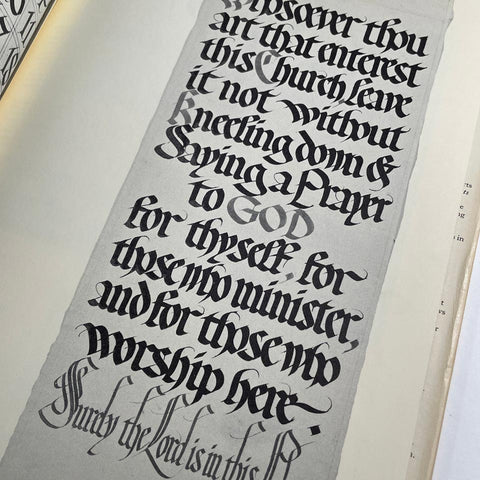 Whosoever thou
art that enterest
this Church, leave
it not without
Kneeling down &
Saying a Prayer
to GOD
for thyself, for
those who minister,
and for those who
worship here.
Surely the Lord is in this